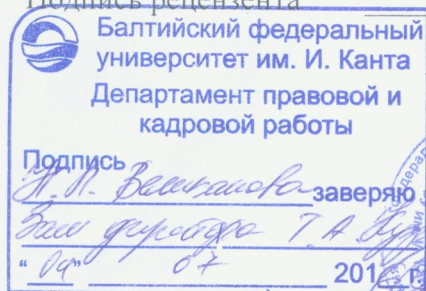 Подпись рецензента
Балтийский федеральный
университет им. И. Канта
Департамент правовой и
кадровой работы
Подпись
заверяю
Зам директора Т. А.
" 04 " 07 201 г.